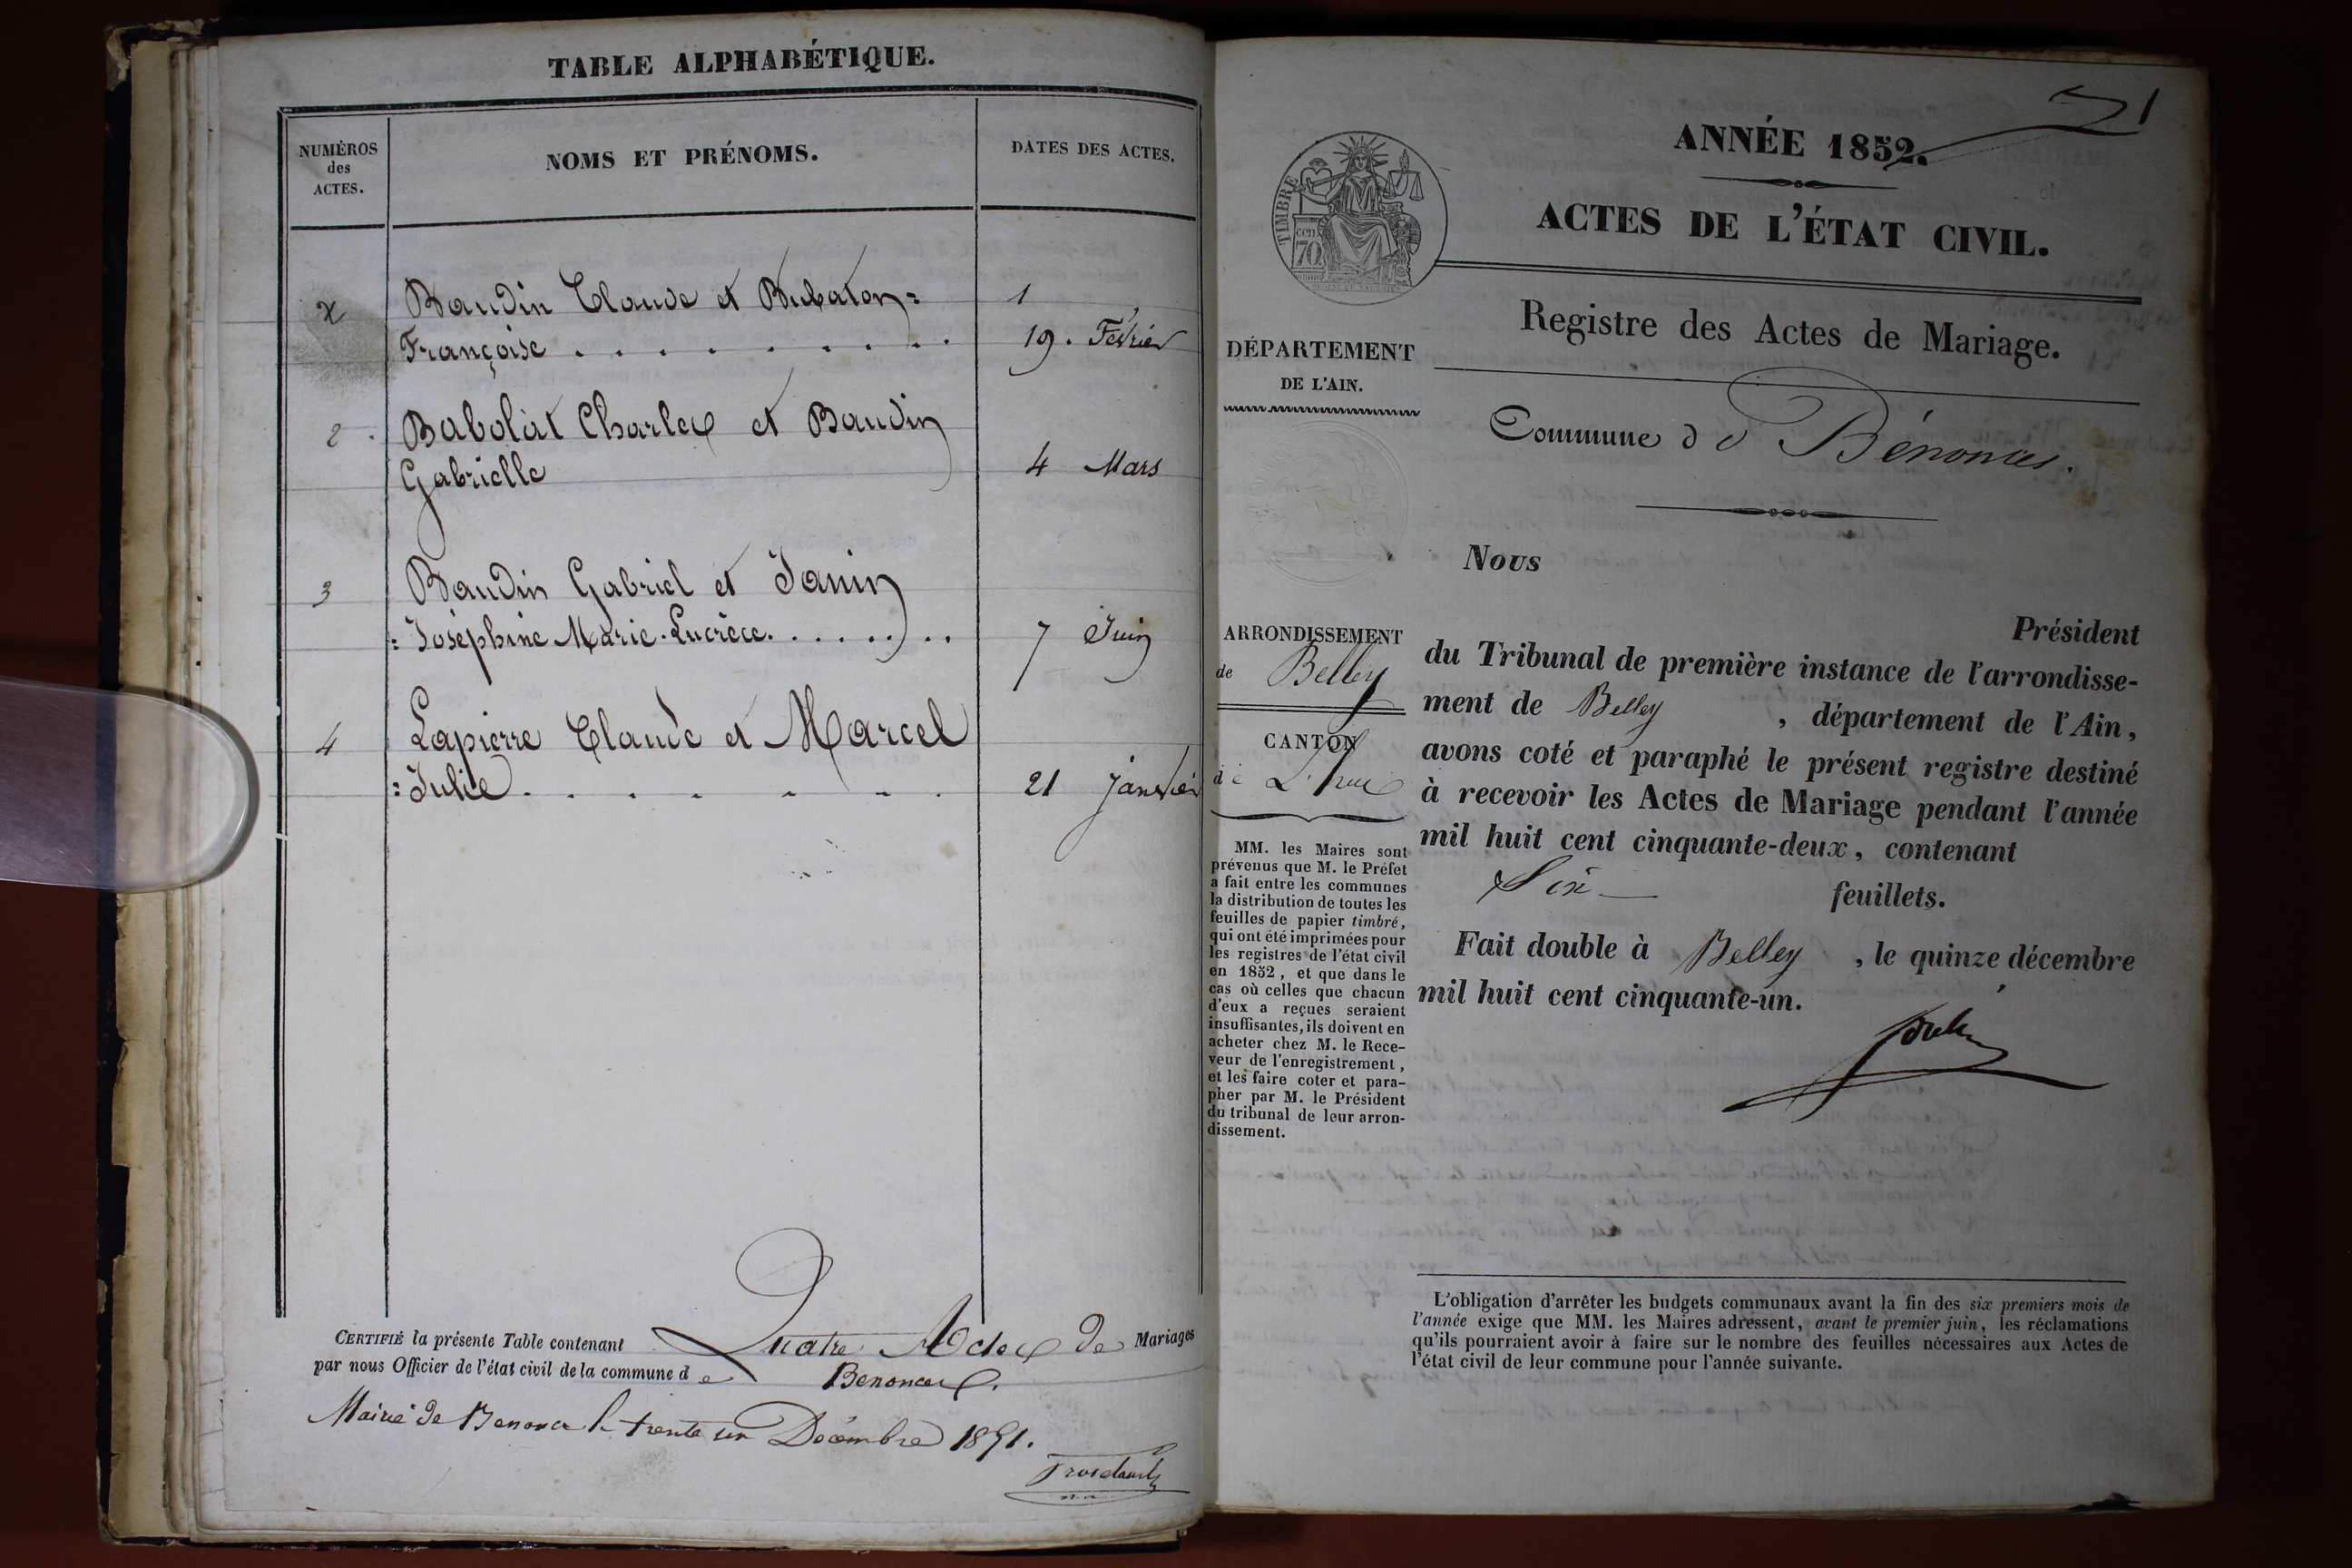 TABLE ALPHABÉTIQUE.
NUMÉROS
des
ACTES.
NOMS ET PRÉNOMS.
DATES DES ACTES.
Baudin Claude et Bubaton=
Françoise . . . . . . . . .
1
19. Février
2. Babolat Charles et Baudin
Gabrielle
4 Mars
3 Baudin Gabriel et Janin
: Joséphine Marie. Lucrèce. . . . . . . .
7 Juin
4 Lapierre Claude et Marcel
: Julie . . . . . . .
21 janvier
CERTIFIÉ la présente Table contenant Quatre Actes de Mariages
par nous Officier de l'état civil de la commune de Benonces.
Mairie de Benonce le trente un Décembre 1851.
1
ANNÉE 1852.
ACTES DE L'ÉTAT CIVIL.
TIMBRE
cen
70
Registre des Actes de Mariage.
DÉPARTEMENT
DE L'AIN.
Commune de Bénonces.
Nous
Président
ARRONDISSEMENT
de Belley
CANTON
de L'huis
du Tribunal de première instance de l'arrondisse-
ment de Belley , département de l'Ain,
avons coté et paraphé le présent registre destiné
à recevoir les Actes de Mariage pendant l'année
mil huit cent cinquante-deux, contenant
Six feuillets.
Fait double à Belley , le quinze décembre
mil huit cent cinquante-un.
MM. les Maires sont
prévenus que M. le Préfet
a fait entre les communes
la distribution de toutes les
feuilles de papier timbré,
qui ont été imprimées pour
les registres de l'état civil
en 1852, et que dans le
cas où celles que chacun
d'eux a reçues seraient
insuffisantes, ils doivent en
acheter chez M. le Rece-
veur de l'enregistrement,
et les faire coter et para-
pher par M. le Président
du tribunal de leur arron-
dissement.
L'obligation d'arrêter les budgets communaux avant la fin des six premiers mois de
l'année exige que MM. les Maires adressent, avant le premier juin, les réclamations
qu'ils pourraient avoir à faire sur le nombre des feuilles nécessaires aux Actes de
l'état civil de leur commune pour l'année suivante.